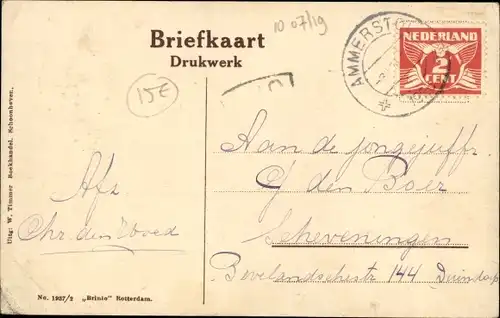 Briefkaart
Drukwerk
10 07/19
15E
AMMERST
NEDERLAND
2
CENT
Aan de jongejuffr.
G den Boer
Scheveningen
Bevelandschestr 144 Duindorp
Afz
Chr. den
Uitg: W. Timmer Boekhandel. Schoonhoven.
No. 1937/2 „Brinio" Rotterdam.